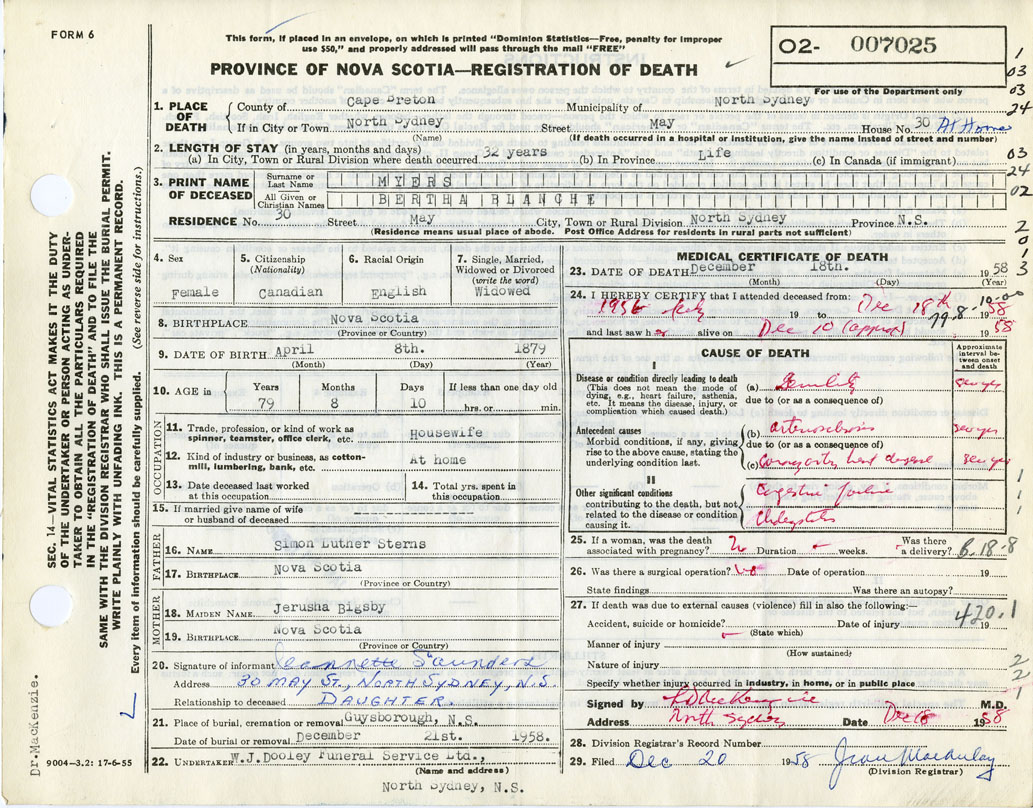 FORM 6
This form, if placed in an envelope, on which is printed "Dominion Statistics—Free, penalty for improper
use $50," and properly addressed will pass through the mail "FREE"
PROVINCE OF NOVA SCOTIA—REGISTRATION OF DEATH
02- 007025
For use of the Department only
1. PLACE OF DEATH
County of Cape Breton Municipality of North Sydney
If in City or Town North Sydney Street May House No. 30 At Home
(Name) (If death occurred in a hospital or institution, give the name instead of street and number)
2. LENGTH OF STAY (in years, months and days)
(a) In City, Town or Rural Division where death occurred 32 years (b) In Province Life (c) In Canada (if immigrant)
3. PRINT NAME OF DECEASED
Surname or Last Name MYERS
All Given or Christian Names BERTHA BLANCHE
RESIDENCE No. 30 Street May City, Town or Rural Division North Sydney Province N.S.
(Residence means usual place of abode. Post Office Address for residents in rural parts not sufficient)
1
03
03
24
03
24
02
2
0
1
3
4. Sex
Female
5. Citizenship
(Nationality)
Canadian
6. Racial Origin
English
7. Single, Married,
Widowed or Divorced
(write the word)
Widowed
8. BIRTHPLACE Nova Scotia
(Province or Country)
9. DATE OF BIRTH April 8th. 1879
(Month) (Day) (Year)
10. AGE in
Years Months Days If less than one day old
79 8 10 hrs. or min.
OCCUPATION
11. Trade, profession, or kind of work as
spinner, teamster, office clerk, etc. Housewife
12. Kind of industry or business, as cotton-
mill, lumbering, bank, etc. At home
13. Date deceased last worked
at this occupation
14. Total yrs. spent in
this occupation
15. If married give name of wife
or husband of deceased
FATHER
16. NAME Simon Luther Sterns
17. BIRTHPLACE Nova Scotia
(Province or Country)
MOTHER
18. MAIDEN NAME Jerusha Bigsby
19. BIRTHPLACE Nova Scotia
(Province or Country)
20. Signature of informant Jeannette Saunders
Address 30 MAY ST., NORTH SYDNEY, N.S.
Relationship to deceased DAUGHTER.
21. Place of burial, cremation or removal Guysborough, N.S.
Date of burial or removal December 21st. 1958.
22. UNDERTAKER W.J.Dooley Funeral Service Ltd.,
(Name and address)
North Sydney, N.S.
MEDICAL CERTIFICATE OF DEATH
23. DATE OF DEATH December 18th. 1958
(Month) (Day) (Year)
24. I HEREBY CERTIFY that I attended deceased from:
1956 19 to Dec 18th 1958
79.8.10-0
and last saw her alive on Dec 10 (approx) 1958
CAUSE OF DEATH
Approximate
interval be-
tween onset
and death
I
Disease or condition directly leading to death
(This does not mean the mode of
dying, e.g., heart failure, asthenia,
etc. It means the disease, injury, or
complication which caused death.)
(a) Senility
due to (or as a consequence of)
Antecedent causes
Morbid conditions, if any, giving
rise to the above cause, stating the
underlying condition last.
(b) arteriosclerosis
due to (or as a consequence of)
(c) Coronary heart disease
II
Other significant conditions
contributing to the death, but not
related to the disease or condition
causing it.
Congestive failure
1
1
1
25. If a woman, was the death
associated with pregnancy? No Duration weeks.
Was there
a delivery?
6.18-8
26. Was there a surgical operation? Date of operation 19
State findings Was there an autopsy?
27. If death was due to external causes (violence) fill in also the following:—
Accident, suicide or homicide? Date of injury 19
(State which)
420.1
Manner of injury
(How sustained)
Nature of injury
Specify whether injury occurred in industry, in home, or in public place
2
2
1
Signed by MacKenzie M.D.
Address North Sydney Date Dec 18 1958
28. Division Registrar's Record Number
29. Filed Dec 20 1958 Jean MacAulay
(Division Registrar)
SEC. 14—VITAL STATISTICS ACT MAKES IT THE DUTY
OF THE UNDERTAKER OR PERSON ACTING AS UNDER-
TAKER TO OBTAIN ALL THE PARTICULARS REQUIRED
IN THE "REGISTRATION OF DEATH" AND TO FILE THE
SAME WITH THE DIVISION REGISTRAR WHO SHALL ISSUE THE BURIAL PERMIT.
WRITE PLAINLY WITH UNFADING INK. THIS IS A PERMANENT RECORD.
Every item of information should be carefully supplied. (See reverse side for instructions.)
Dr.MacKenzie.
9004-3.2: 17-6-55